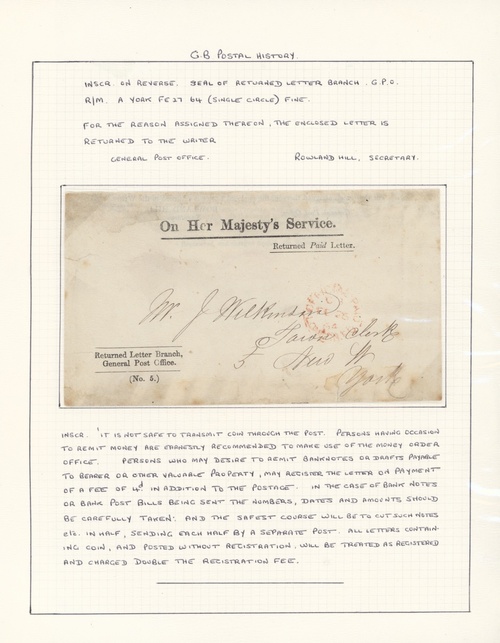 G.B POSTAL HISTORY.
INSCR. ON REVERSE. SEAL OF RETURNED LETTER BRANCH. G.P.O.
R/M. A YORK FE 27 64 (SINGLE CIRCLE) FINE.
FOR THE REASON ASSIGNED THEREON, THE ENCLOSED LETTER IS
RETURNED TO THE WRITER
GENERAL POST OFFICE. ROWLAND HILL, SECRETARY.
On Her Majesty's Service.
Returned Paid Letter.
Mr. J Wilkinson
Town Clerk
5 New
York
Returned Letter Branch,
General Post Office.
(No. 5.)
INSCR. 'IT IS NOT SAFE TO TRANSMIT COIN THROUGH THE POST. PERSONS HAVING OCCASION
TO REMIT MONEY ARE EARNESTLY RECOMMENDED TO MAKE USE OF THE MONEY ORDER
OFFICE. PERSONS WHO MAY DESIRE TO REMIT BANKNOTES OR DRAFTS PAYABLE
TO BEARER OR OTHER VALUABLE PROPERTY, MAY REGISTER THE LETTER ON PAYMENT
OF A FEE OF 4d IN ADDITION TO THE POSTAGE. IN THE CASE OF BANK NOTES
OR BANK POST BILLS BEING SENT THE NUMBERS, DATES AND AMOUNTS SHOULD
BE CAREFULLY TAKEN: AND THE SAFEST COURSE WILL BE TO CUT SUCH NOTES
etc. IN HALF, SENDING EACH HALF BY A SEPARATE POST. ALL LETTERS CONTAIN-
ING COIN, AND POSTED WITHOUT REGISTRATION, WILL BE TREATED AS REGISTERED
AND CHARGED DOUBLE THE REGISTRATION FEE.